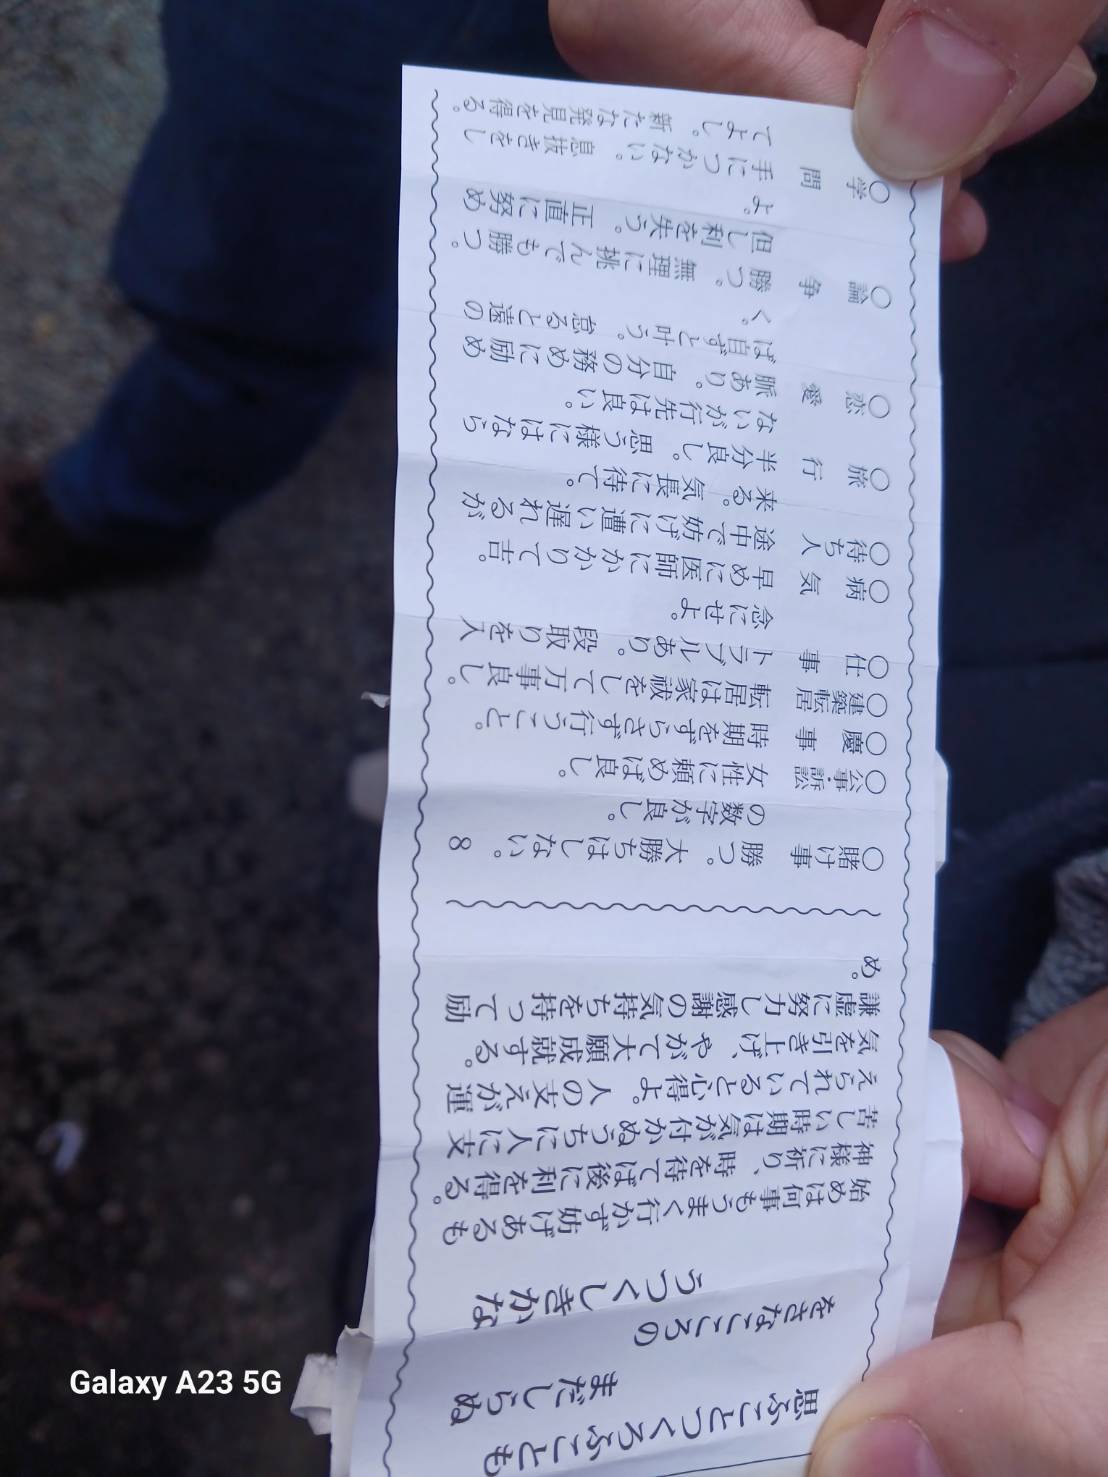 思ふことつくろふことも
まだしらぬ
をさなこころの
うつくしきかな
始めは何事もうまく行かず妨げあるも
神様に祈り、時を待てば後に利を得る。
苦しい時期は気が付かぬうちに人に支
えられていると心得よ。人の支えが運
気を引き上げ、やがて大願成就する。
謙虚に努力し感謝の気持ちを持って励
め。
○賭け事 勝つ。大勝ちはしない。8
の数字が良し。
○公事・訴訟 女性に頼めば良し。
○慶事 時期をずらさず行うこと。
○建築転居 転居は家祓をして万事良し。
○仕事 トラブルあり。段取りを入
念にせよ。
○病気 早めに医師にかかりて吉。
○待ち人 途中で妨げに遭い遅れるが
来る。気長に待て。
○旅行 半分良し。思う様にはなら
ないが行先は良い。
○恋愛 脈あり。自分の務めに励め
ば自ずと叶う。怠ると遠の
く。
○論争 勝つ。無理に挑んでも勝つ
但し利を失う。正直に努め
よ。
○学問 手につかない。息抜きをし
てよし。新たな発見を得る。
Galaxy A23 5G